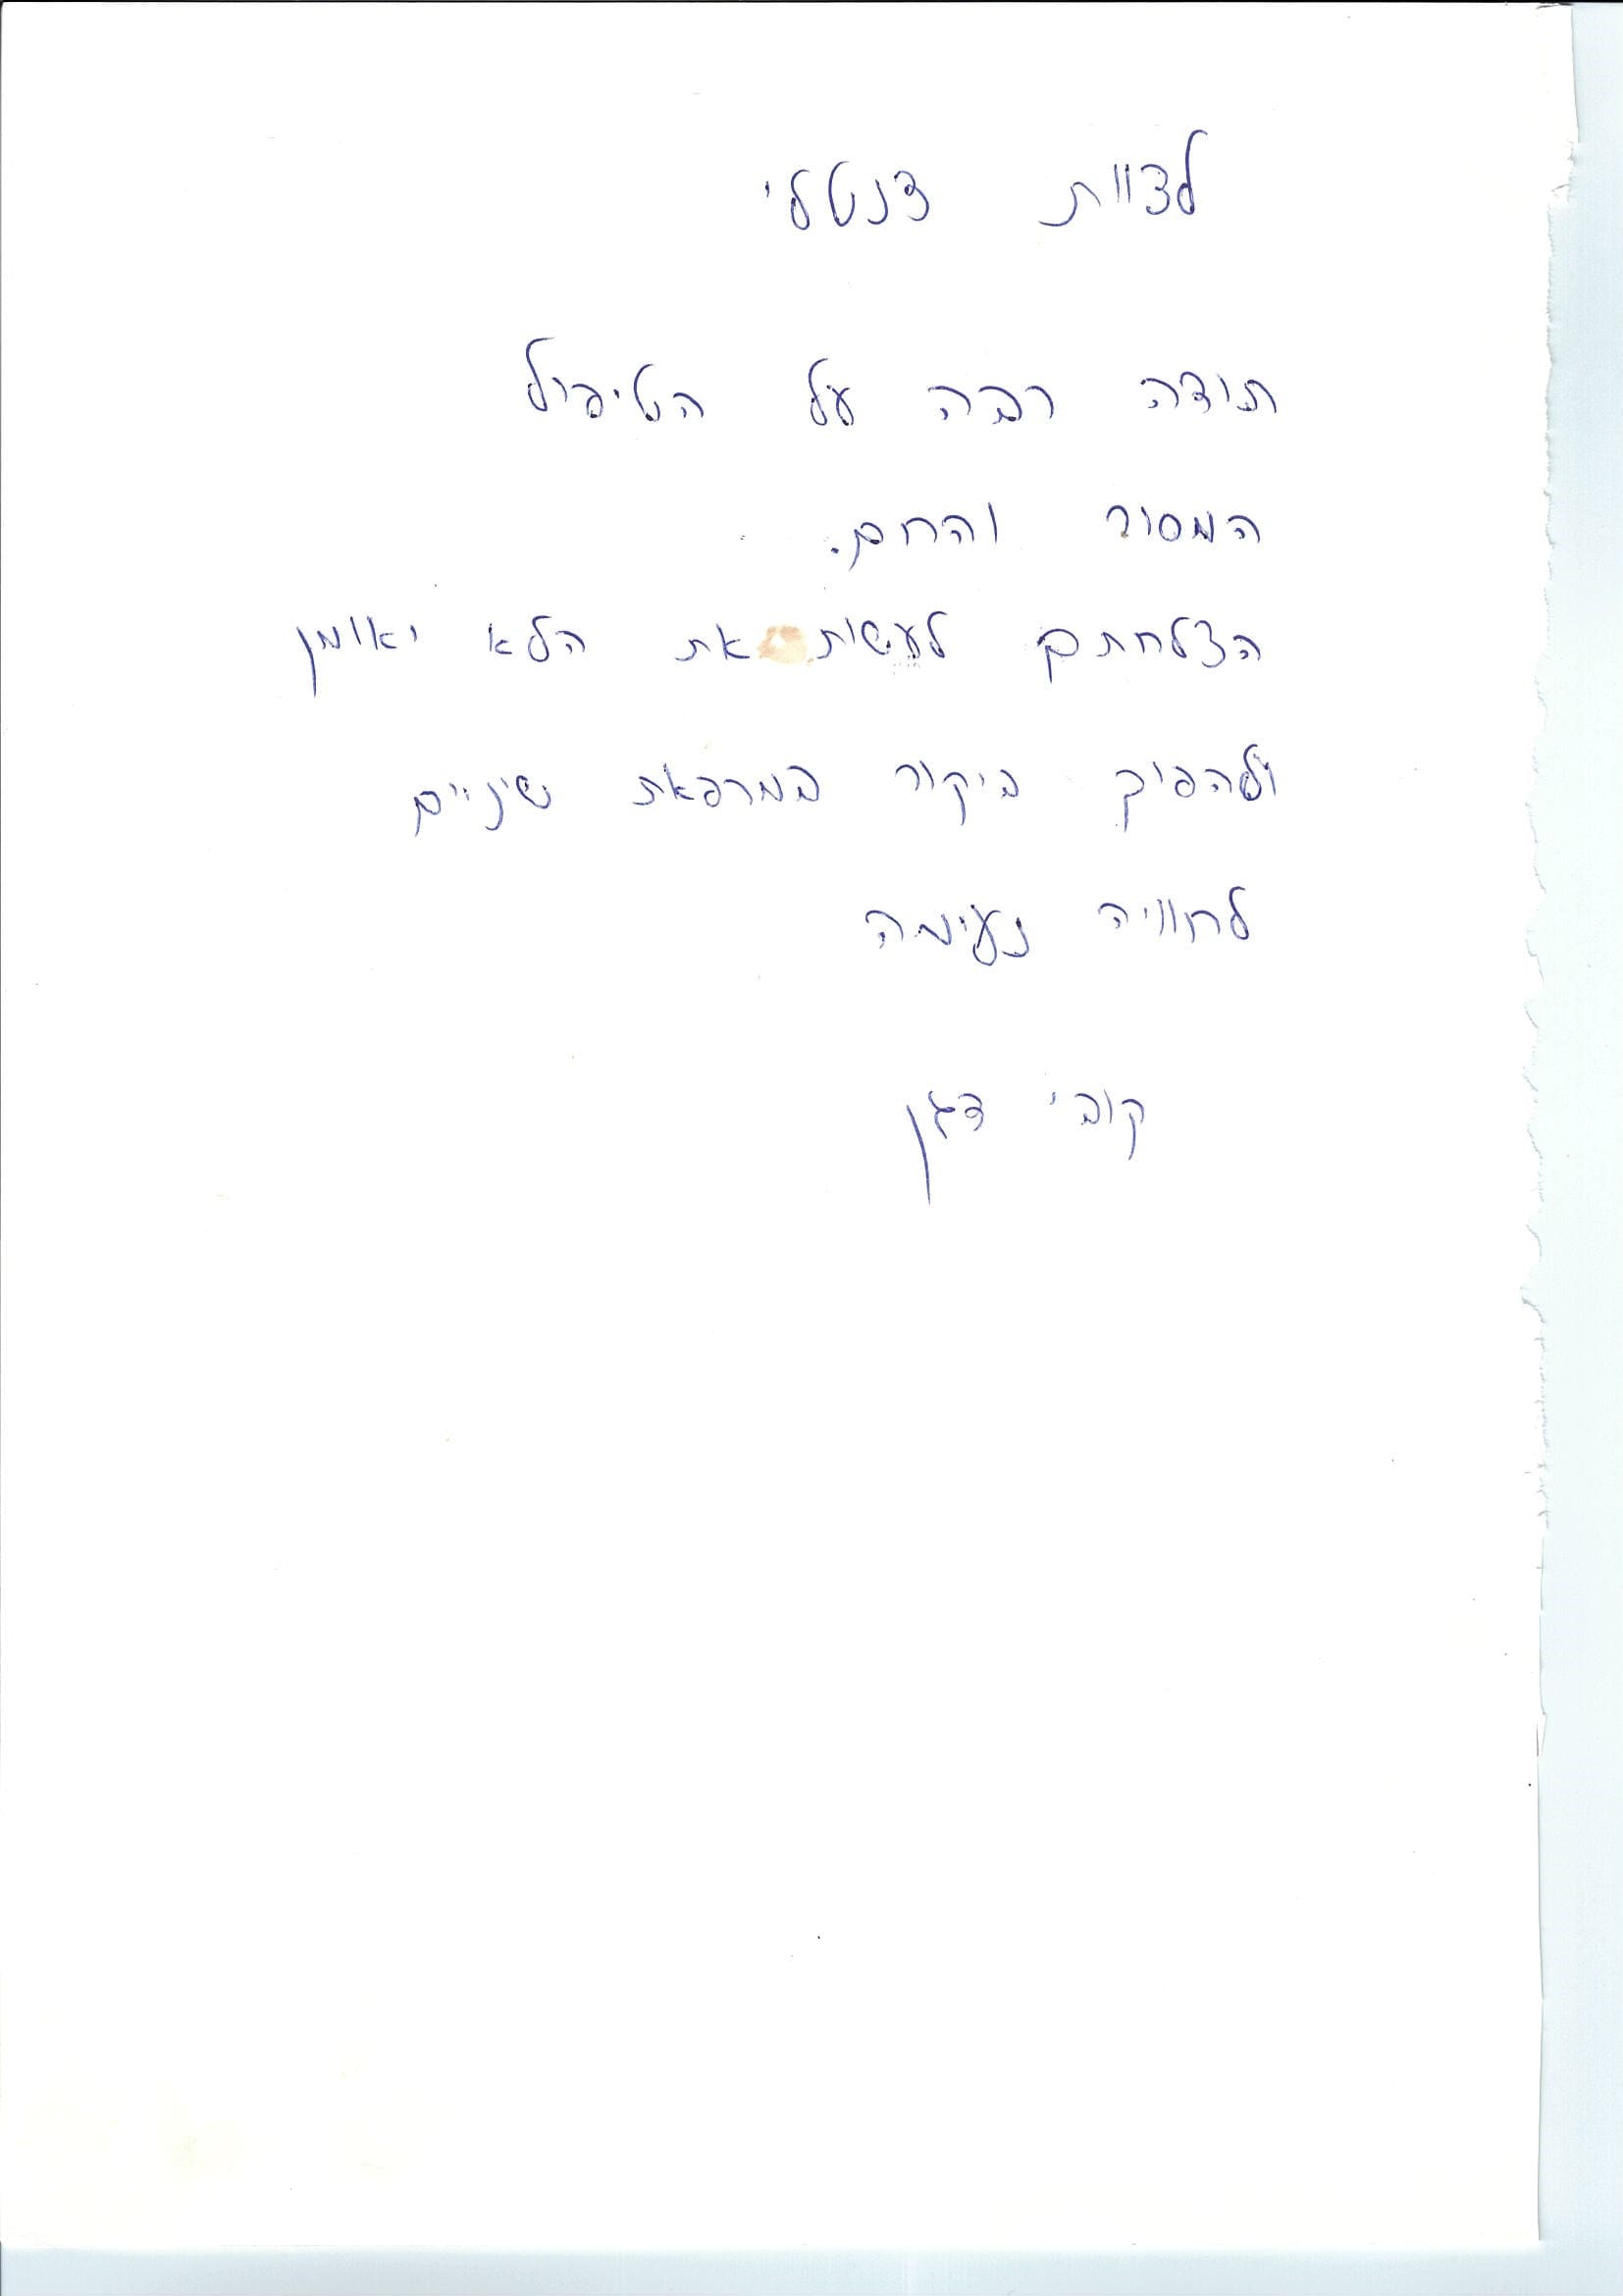 לצוות דנטלי
תודה רבה על הטיפול
המסור והחם.
הצלחתם לעשות את הלא יאומן
ולהפוך ביקור במרפאת שיניים
לחוויה נעימה
קובי דגן